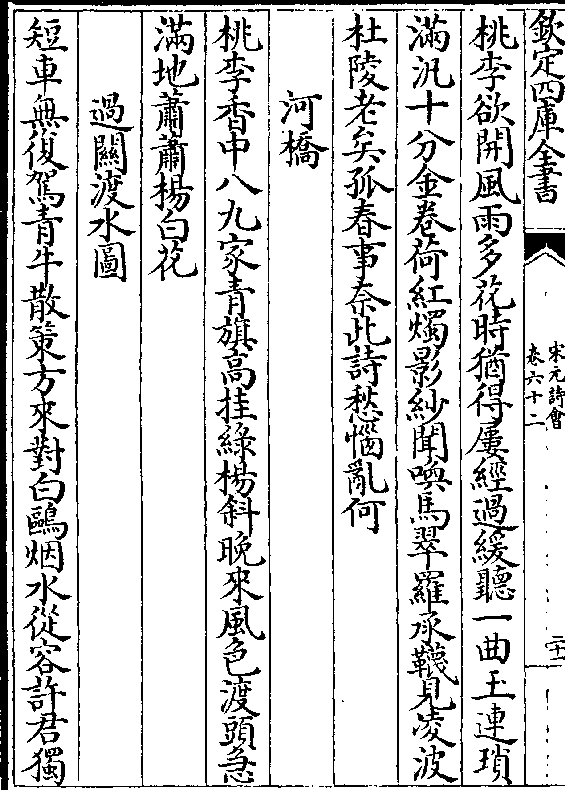 欽定四庫全書
宋元詩會
卷六十二
二十一
桃李欲開風雨多花時猶得屢經過緩聽一曲玉連瑣
滿汎十分金卷荷紅燭影紗聞喚馬翠羅承韈見凌波
杜陵老矣孤春事柰此詩愁惱亂何
河橋
桃李香中八九家青旗高挂綠楊斜晚來風色渡頭急
滿地蕭蕭楊白花
過關渡水圖
短車無復駕青牛散策方來對白鷗烟水從容許君獨